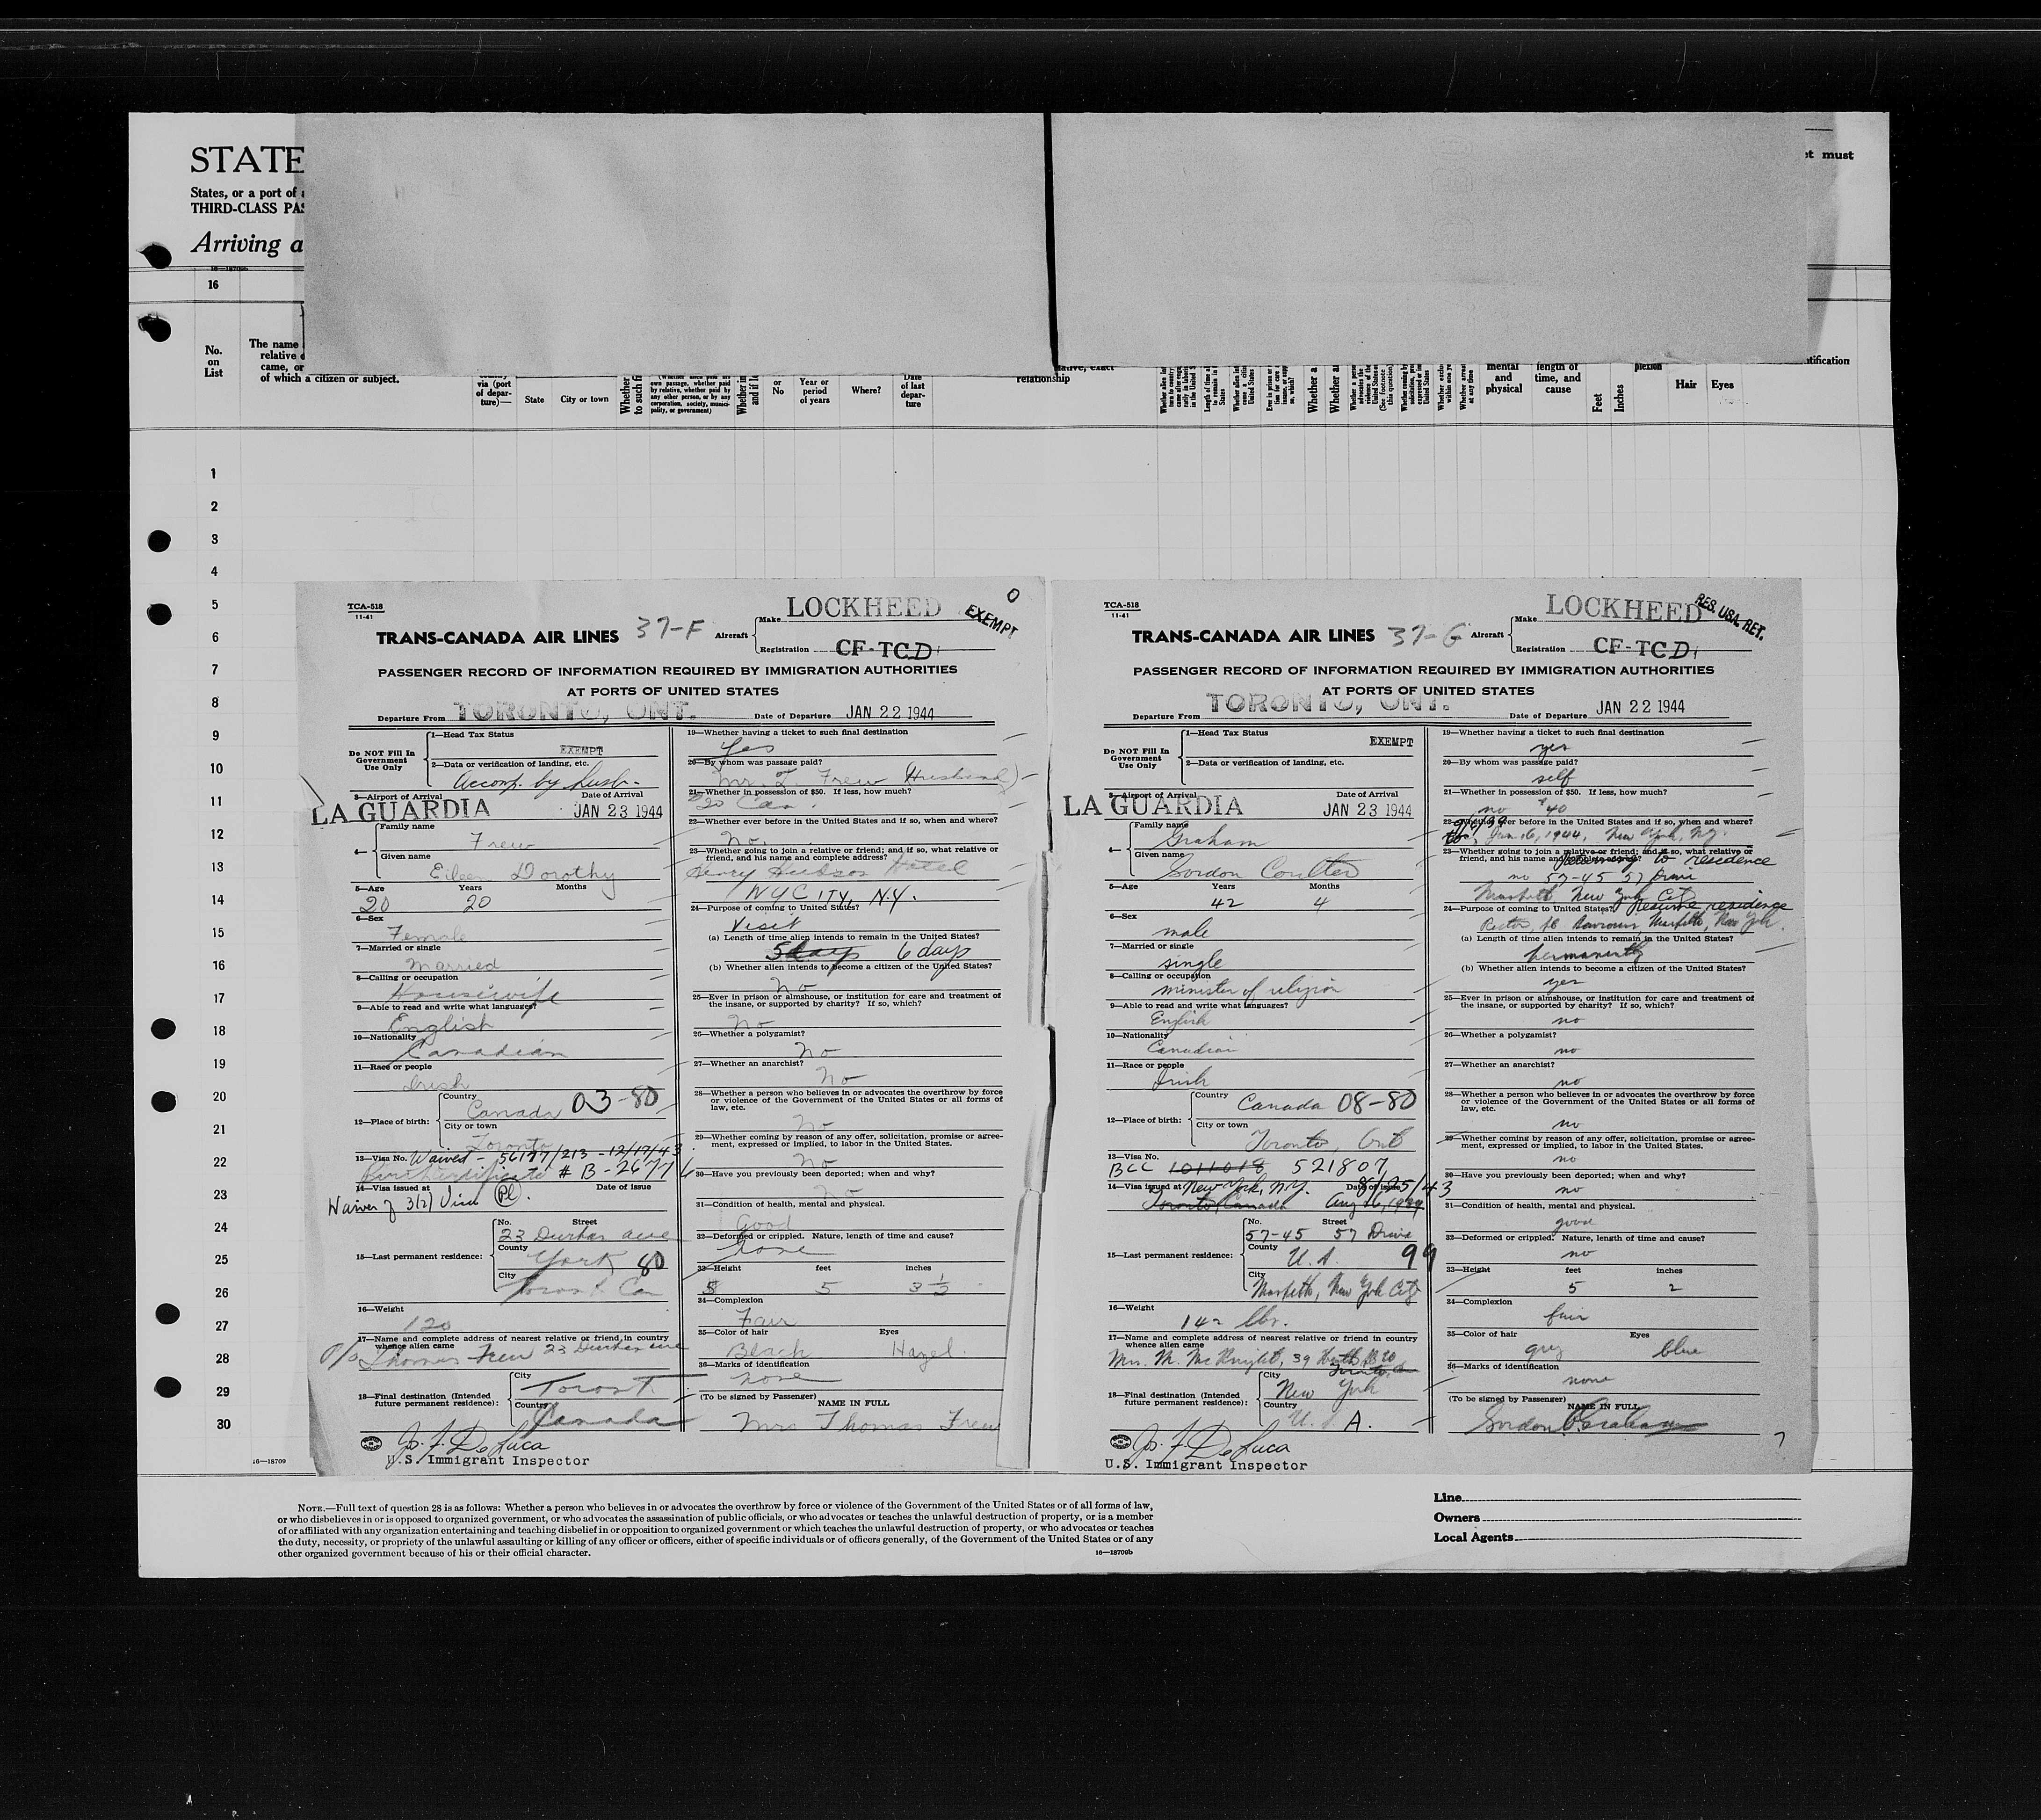 STATE
States, or a port of
THIRD-CLASS PAS
Arriving a
et must
16—18709b
16
No.
on
List
The name
relative
came, or
of which a citizen or subject.
via (port
of depar-
ture)—
State
City or town
Whether
to such fi
own passage, whether paid
by relative, whether paid by
any other person, or by any
corporation, society, munici-
pality, or government)
Whether in
or
No
Year or
period
of years
Where?
Date
of last
depar-
ture
relationship
mental
and
physical
length of
time, and
cause
Feet
Inches
plexion
Hair
Eyes
ntification
1
2
3
4
5
6
7
8
9
10
11
12
13
14
15
16
17
18
19
20
21
22
23
24
25
26
27
28
29
30
TCA-518
11-41
LOCKHEED
O
EXEMPT
TRANS-CANADA AIR LINES 37-F Aircraft Make
Registration CF-TCD
PASSENGER RECORD OF INFORMATION REQUIRED BY IMMIGRATION AUTHORITIES
AT PORTS OF UNITED STATES
Departure From TORONTO, ONT. Date of Departure JAN 22 1944
Do NOT Fill In
Government
Use Only
1—Head Tax Status
EXEMPT
2—Data or verification of landing, etc.
Accomp. by husb.
3—Airport of Arrival Date of Arrival
LA GUARDIA JAN 23 1944
4—
Family name
Frew
Given name
Eileen Dorothy
5—Age Years Months
20 20
6—Sex
Female
7—Married or single
Married
8—Calling or occupation
Housewife
9—Able to read and write what languages?
English
10—Nationality
Canadian
11—Race or people
Irish
12—Place of birth:
Country
Canada 03-80
City or town
Toronto
13—Visa No. Waived - 56177/213 - 12/17/43
Birth Certificate # B-26776
14—Visa issued at Date of issue
Waiver of 3(2) Visa Pl.
15—Last permanent residence:
No. Street
23 Durham ave
County
York 80
City
Toronto Can
16—Weight
120
17—Name and complete address of nearest relative or friend in country
whence alien came
Thomas Frew 23 Durham ave
18—Final destination (Intended
future permanent residence):
City
Toront
Country
Canada
Jos. F. De Luca
U.S. Immigrant Inspector
19—Whether having a ticket to such final destination
Yes
20—By whom was passage paid?
Mr. Frew (Husband)
21—Whether in possession of $50. If less, how much?
$20 Can.
22—Whether ever before in the United States and if so, when and where?
No.
23—Whether going to join a relative or friend; and if so, what relative or
friend, and his name and complete address?
Henry Hudson Hotel
NYCITY, N.Y.
24—Purpose of coming to United States?
Visit
(a) Length of time alien intends to remain in the United States?
5 days 6 days
(b) Whether alien intends to become a citizen of the United States?
No
25—Ever in prison or almshouse, or institution for care and treatment of
the insane, or supported by charity? If so, which?
No
26—Whether a polygamist?
No
27—Whether an anarchist?
No
28—Whether a person who believes in or advocates the overthrow by force
or violence of the Government of the United States or all forms of
law, etc.
No
29—Whether coming by reason of any offer, solicitation, promise or agree-
ment, expressed or implied, to labor in the United States.
No
30—Have you previously been deported; when and why?
No
31—Condition of health, mental and physical.
Good
32—Deformed or crippled. Nature, length of time and cause?
None
33—Height feet inches
5 5 3 1/2
34—Complexion
Fair
35—Color of hair Eyes
Black Hazel
36—Marks of identification
None
(To be signed by Passenger) NAME IN FULL
Mrs Thomas Frew
TCA-518
11-41
LOCKHEED
RES. USA. RET.
TRANS-CANADA AIR LINES 37-G Aircraft Make
Registration CF-TCD
PASSENGER RECORD OF INFORMATION REQUIRED BY IMMIGRATION AUTHORITIES
AT PORTS OF UNITED STATES
Departure From TORONTO, ONT. Date of Departure JAN 22 1944
Do NOT Fill In
Government
Use Only
1—Head Tax Status
EXEMPT
2—Data or verification of landing, etc.
3—Airport of Arrival Date of Arrival
LA GUARDIA JAN 23 1944
4—
Family name
Graham
Given name
Gordon Coulter
5—Age Years Months
42 4
6—Sex
male
7—Married or single
single
8—Calling or occupation
minister of religion
9—Able to read and write what languages?
English
10—Nationality
Canadian
11—Race or people
Irish
12—Place of birth:
Country
Canada 08-80
City or town
Toronto, Ont
13—Visa No.
BCC 1011018 521807
14—Visa issued at New York, N.Y. Date of issue 8/25/43
Toronto Canada Aug 16, 1939
15—Last permanent residence:
No. Street
57-45 57 Drive
County
U.S. 99
City
Maspeth, New York City
16—Weight
142 lbs.
17—Name and complete address of nearest relative or friend in country
whence alien came
Mrs. M. McKnight, 39 Heath
18—Final destination (Intended
future permanent residence):
City
New York
Country
U.S.A.
Jos. F. De Luca
U.S. Immigrant Inspector
19—Whether having a ticket to such final destination
yes
20—By whom was passage paid?
self
21—Whether in possession of $50. If less, how much?
no $40
22—Whether ever before in the United States and if so, when and where?
Jan 16, 1944, New York, N.Y.
23—Whether going to join a relative or friend; and if so, what relative or
friend, and his name and complete address?
Returning to residence
no 57-45 57 Drive
Maspeth New York City
24—Purpose of coming to United States? Resume residence
Rector, St Saviours, Maspeth, New York.
(a) Length of time alien intends to remain in the United States?
permanently
(b) Whether alien intends to become a citizen of the United States?
yes
25—Ever in prison or almshouse, or institution for care and treatment of
the insane, or supported by charity? If so, which?
no
26—Whether a polygamist?
no
27—Whether an anarchist?
no
28—Whether a person who believes in or advocates the overthrow by force
or violence of the Government of the United States or all forms of
law, etc.
no
29—Whether coming by reason of any offer, solicitation, promise or agree-
ment, expressed or implied, to labor in the United States.
no
30—Have you previously been deported; when and why?
no
31—Condition of health, mental and physical.
good
32—Deformed or crippled. Nature, length of time and cause?
no
33—Height feet inches
5 2
34—Complexion
fair
35—Color of hair Eyes
grey blue
36—Marks of identification
none
(To be signed by Passenger) NAME IN FULL
Gordon C. Graham
16—18709
NOTE.—Full text of question 28 is as follows: Whether a person who believes in or advocates the overthrow by force or violence of the Government of the United States or of all forms of law,
or who disbelieves in or is opposed to organized government, or who advocates the assassination of public officials, or who advocates or teaches the unlawful destruction of property, or is a member
of or affiliated with any organization entertaining and teaching disbelief in or opposition to organized government or which teaches the unlawful destruction of property, or who advocates or teaches
the duty, necessity, or propriety of the unlawful assaulting or killing of any officer or officers, either of specific individuals or of officers generally, of the Government of the United States or of any
other organized government because of his or their official character.
16—18709b
Line
Owners
Local Agents